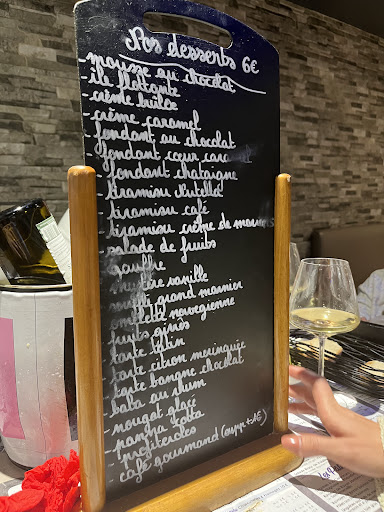 Nos desserts 6€
- mousse au chocolat
- île flottante
- crème brûlée
- crème caramel
- fondant au chocolat
- fondant cœur
- fondant chataigne
- tiramisu Nutella
- tiramisu café
- tiramisu crème de marrons
- salade de fruits
- gauffre
- vanille
- grand marnier
- omelette norvegienne
- fruits givrés
- tarte tatin
- tarte citron meringuée
- tarte banane chocolat
- baba au rhum
- nougat glacé
- panna cotta
- profiteroles
- café gourmand (supp + 1€)